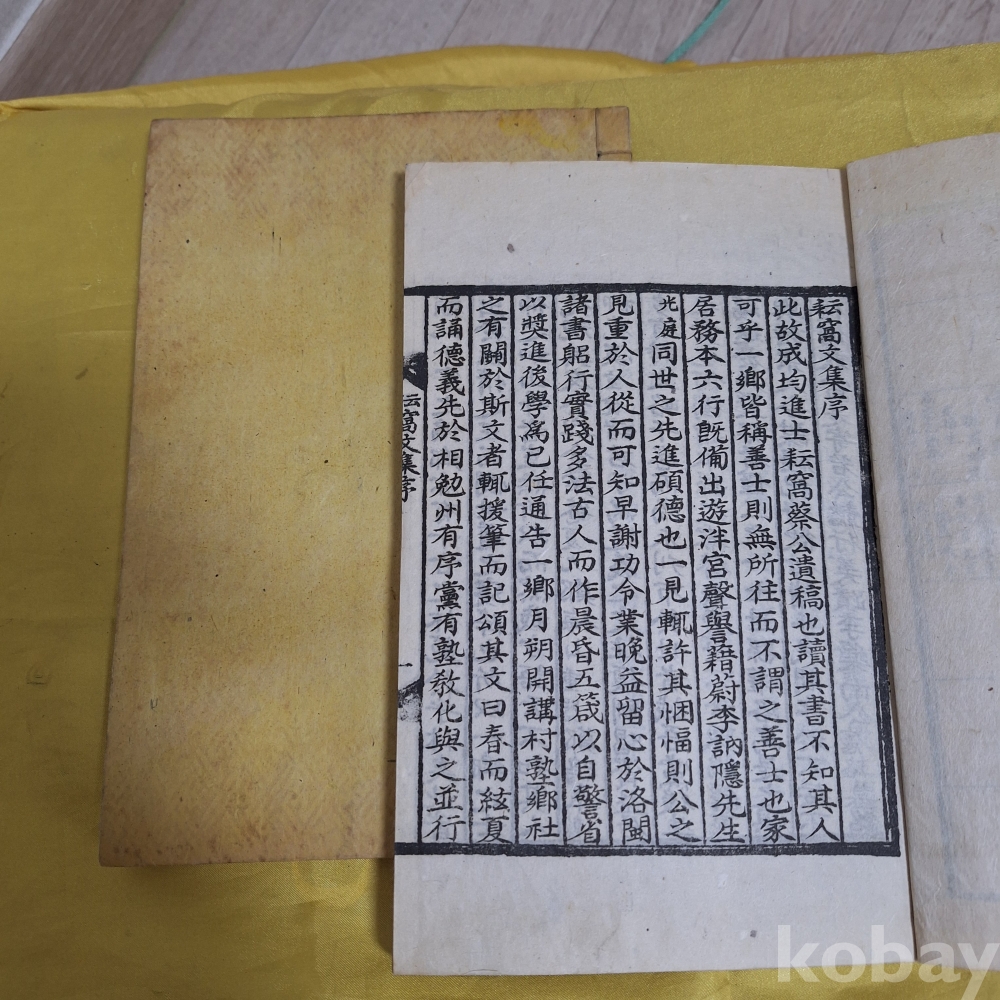 耘窩文集序
此故成均進士耘窩蔡公遺稿也讀其書不知其人
可乎一鄉皆稱善士則無所往而不謂之善士也家
居務本六行旣備出遊泮宮聲譽藉蔚李訥隱先生
光庭同世之先進碩德也一見輒許其悃愊則公之
見重於人從而可知早謝功令業晩益留心於洛閩
諸書躬行實踐多法古人而作晨昏五箴以自警省
以奬進後學爲已任通告一鄉月朔開講村塾鄉社
之有關於斯文者輒援筆而記頌其文曰春而絃夏
而誦德義先於相勉州有序黨有塾敎化與之並行
耘窩文集序
一
kobay